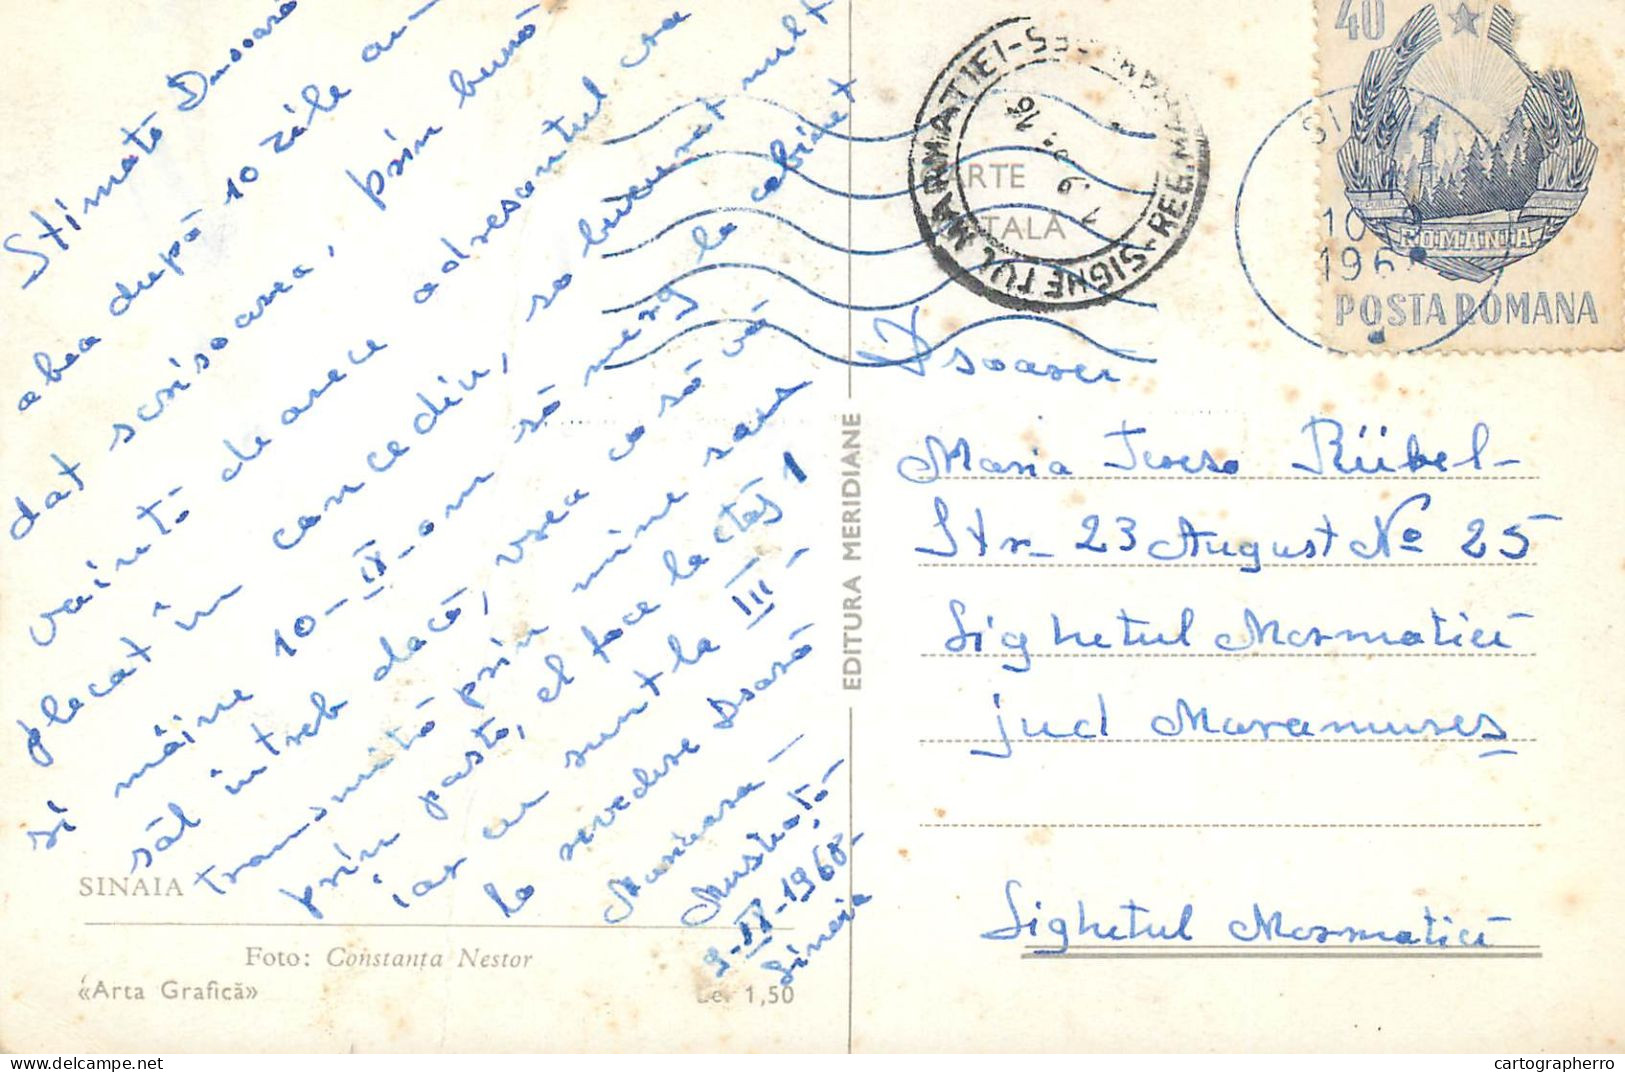 Stimată Dsoară
abea după 10 zile am
dat scrisoarea, prin bună
vointă deoarece adresantul era
placat în concediu, sa bucurat mult
si mâine 10-IX-am să merg la cabinet
săl întreb dacă, vrea ca să vă
transmită prin mine sau
prin postă, el face la etaj 1
iar eu sunt la III-
la revedere Dsoară
Mustață-
9-IX-1968-
Sinaia
SINAIA
Foto: Constanța Nestor
«Arta Grafică»
Lei 1,50
EDITURA MERIDIANE
CARTE
POȘTALĂ
SIGHETUL MARMATIEI
40
ROMANIA
POSTA ROMANA
10
196
Dsoarei
Maria Tereso Rübel-
Str- 23 August No 25
Sighetul Marmatiei
jud Maramures
Sighetul Marmatiei
cartographerro